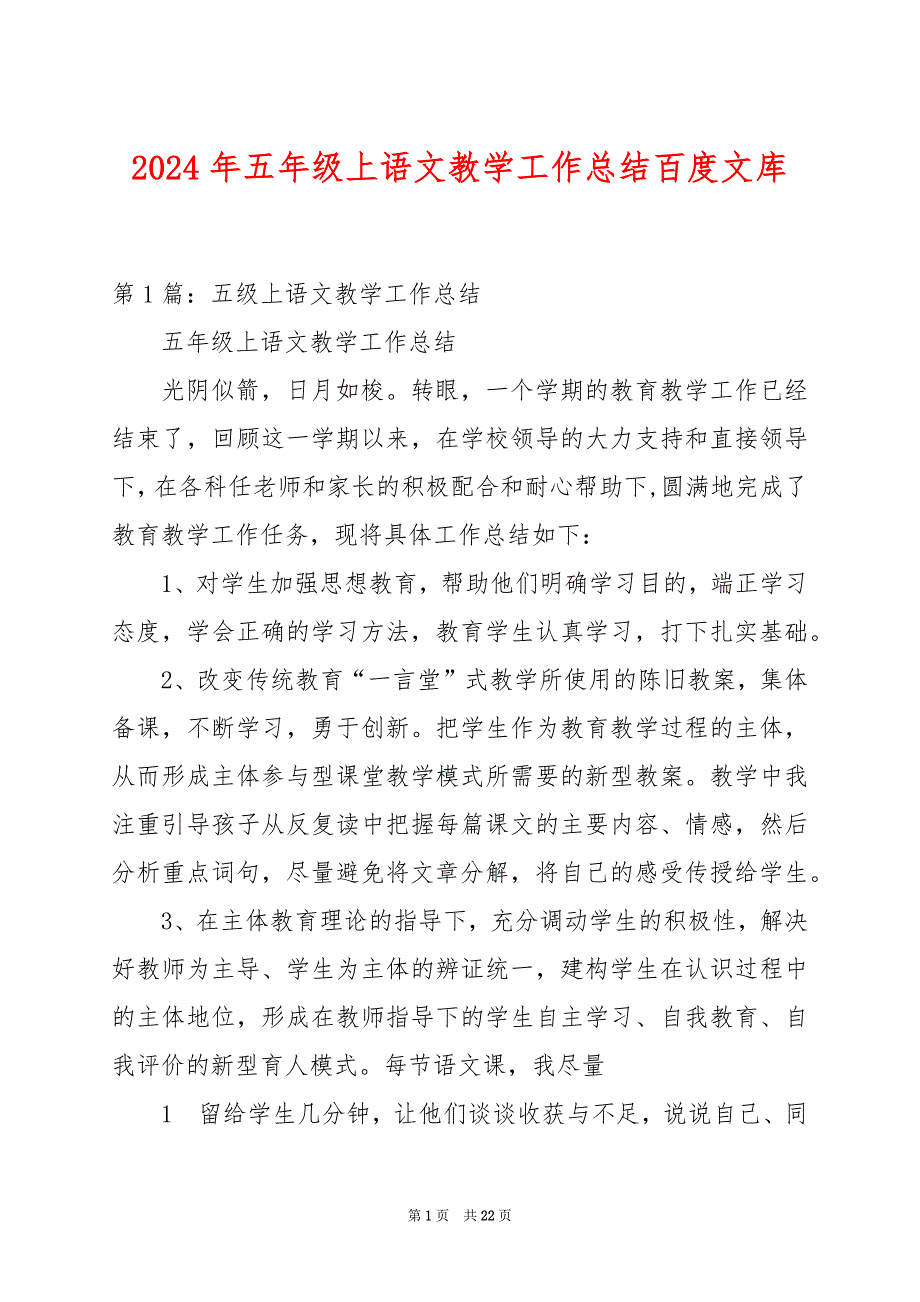 2024 年五年级上语文教学工作总结百度文库
第 1 篇：五级上语文教学工作总结
五年级上语文教学工作总结
光阴似箭，日月如梭。转眼，一个学期的教育教学工作已经
结束了，回顾这一学期以来，在学校领导的大力支持和直接领导
下，在各科任老师和家长的积极配合和耐心帮助下,圆满地完成了
教育教学工作任务，现将具体工作总结如下：
1、对学生加强思想教育，帮助他们明确学习目的，端正学习
态度，学会正确的学习方法，教育学生认真学习，打下扎实基础。
2、改变传统教育“一言堂”式教学所使用的陈旧教案，集体
备课，不断学习，勇于创新。把学生作为教育教学过程的主体，
从而形成主体参与型课堂教学模式所需要的新型教案。教学中我
注重引导孩子从反复读中把握每篇课文的主要内容、情感，然后
分析重点词句，尽量避免将文章分解，将自己的感受传授给学生。
3、在主体教育理论的指导下，充分调动学生的积极性，解决
好教师为主导、学生为主体的辨证统一，建构学生在认识过程中
的主体地位，形成在教师指导下的学生自主学习、自我教育、自
我评价的新型育人模式。每节语文课，我尽量
1 留给学生几分钟，让他们谈谈收获与不足，说说自己、同
第 1 页 共 22 页